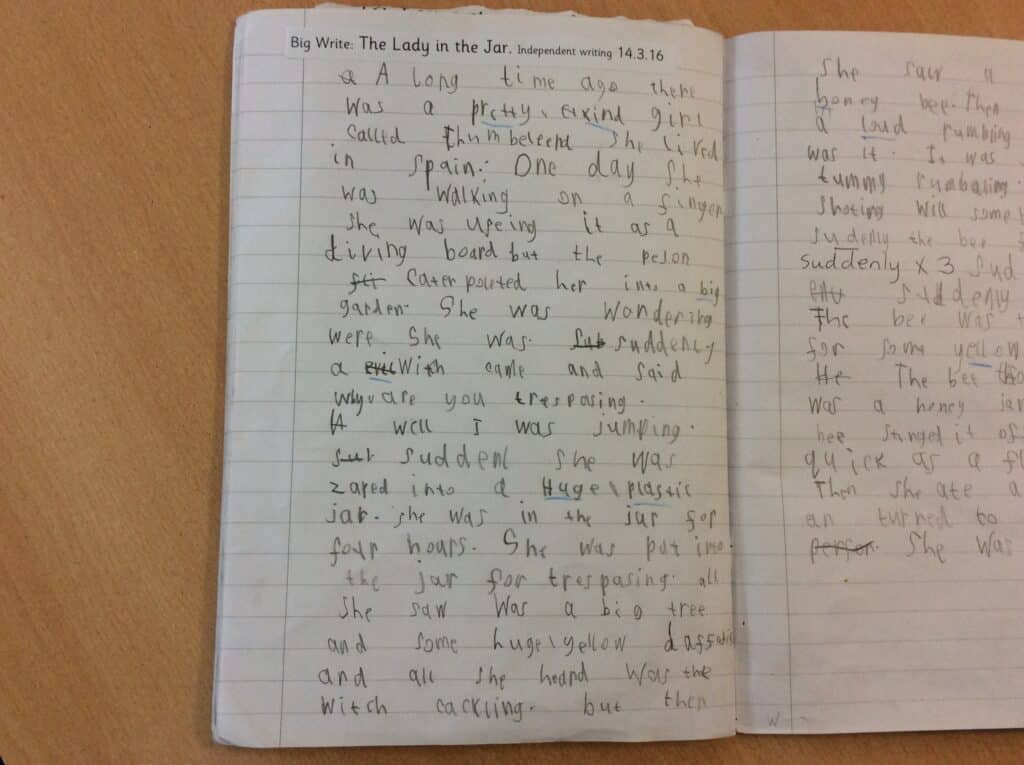 Big Write: The Lady in the Jar. Independent writing 14.3.16
A long time ago there
was a pretty, & kind girl
called Thumbeleend she lived
in spain. One day she
was walking on a finger
she was useing it as a
diving board but the peson
cater pouted her into a big
garden. She was wondering
were she was. suddenly
a evil With came and said
why are you trespasing.
A well I was jumping.
sut suddenl she was
zaped into a Huge \ plastic
jar. she was in the jar for
four hours. She was put into
the jar for trespasing. all
she saw was a big tree
and some huge \ yellow daffodils
and all she heard was the
witch cackling. but then
She saw a
honey bee. Then
a loud rumbling
was it. It was
tummy rumbaling.
shoting will some
suddenly the bee
suddenly x 3 sud
suddenly
The bee was
for some yellow
He The bee
was a honey jar
bee stinged it of
quick as a fl
Then she ate a
an turned to
person. She was